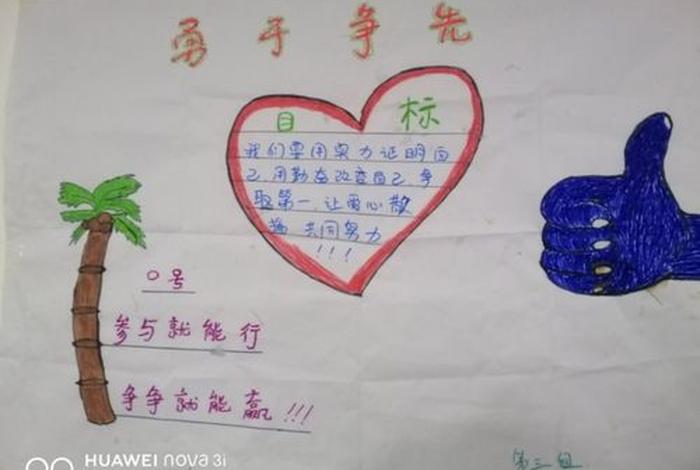 勇于争先
目 标
我们要用实力证明自
己,用勤奋改变自己,争
取第一,让爱心散
播 共同努力
!!!
口号
参与就能行
争争就能赢!!!
第三组
HUAWEI nova 3i